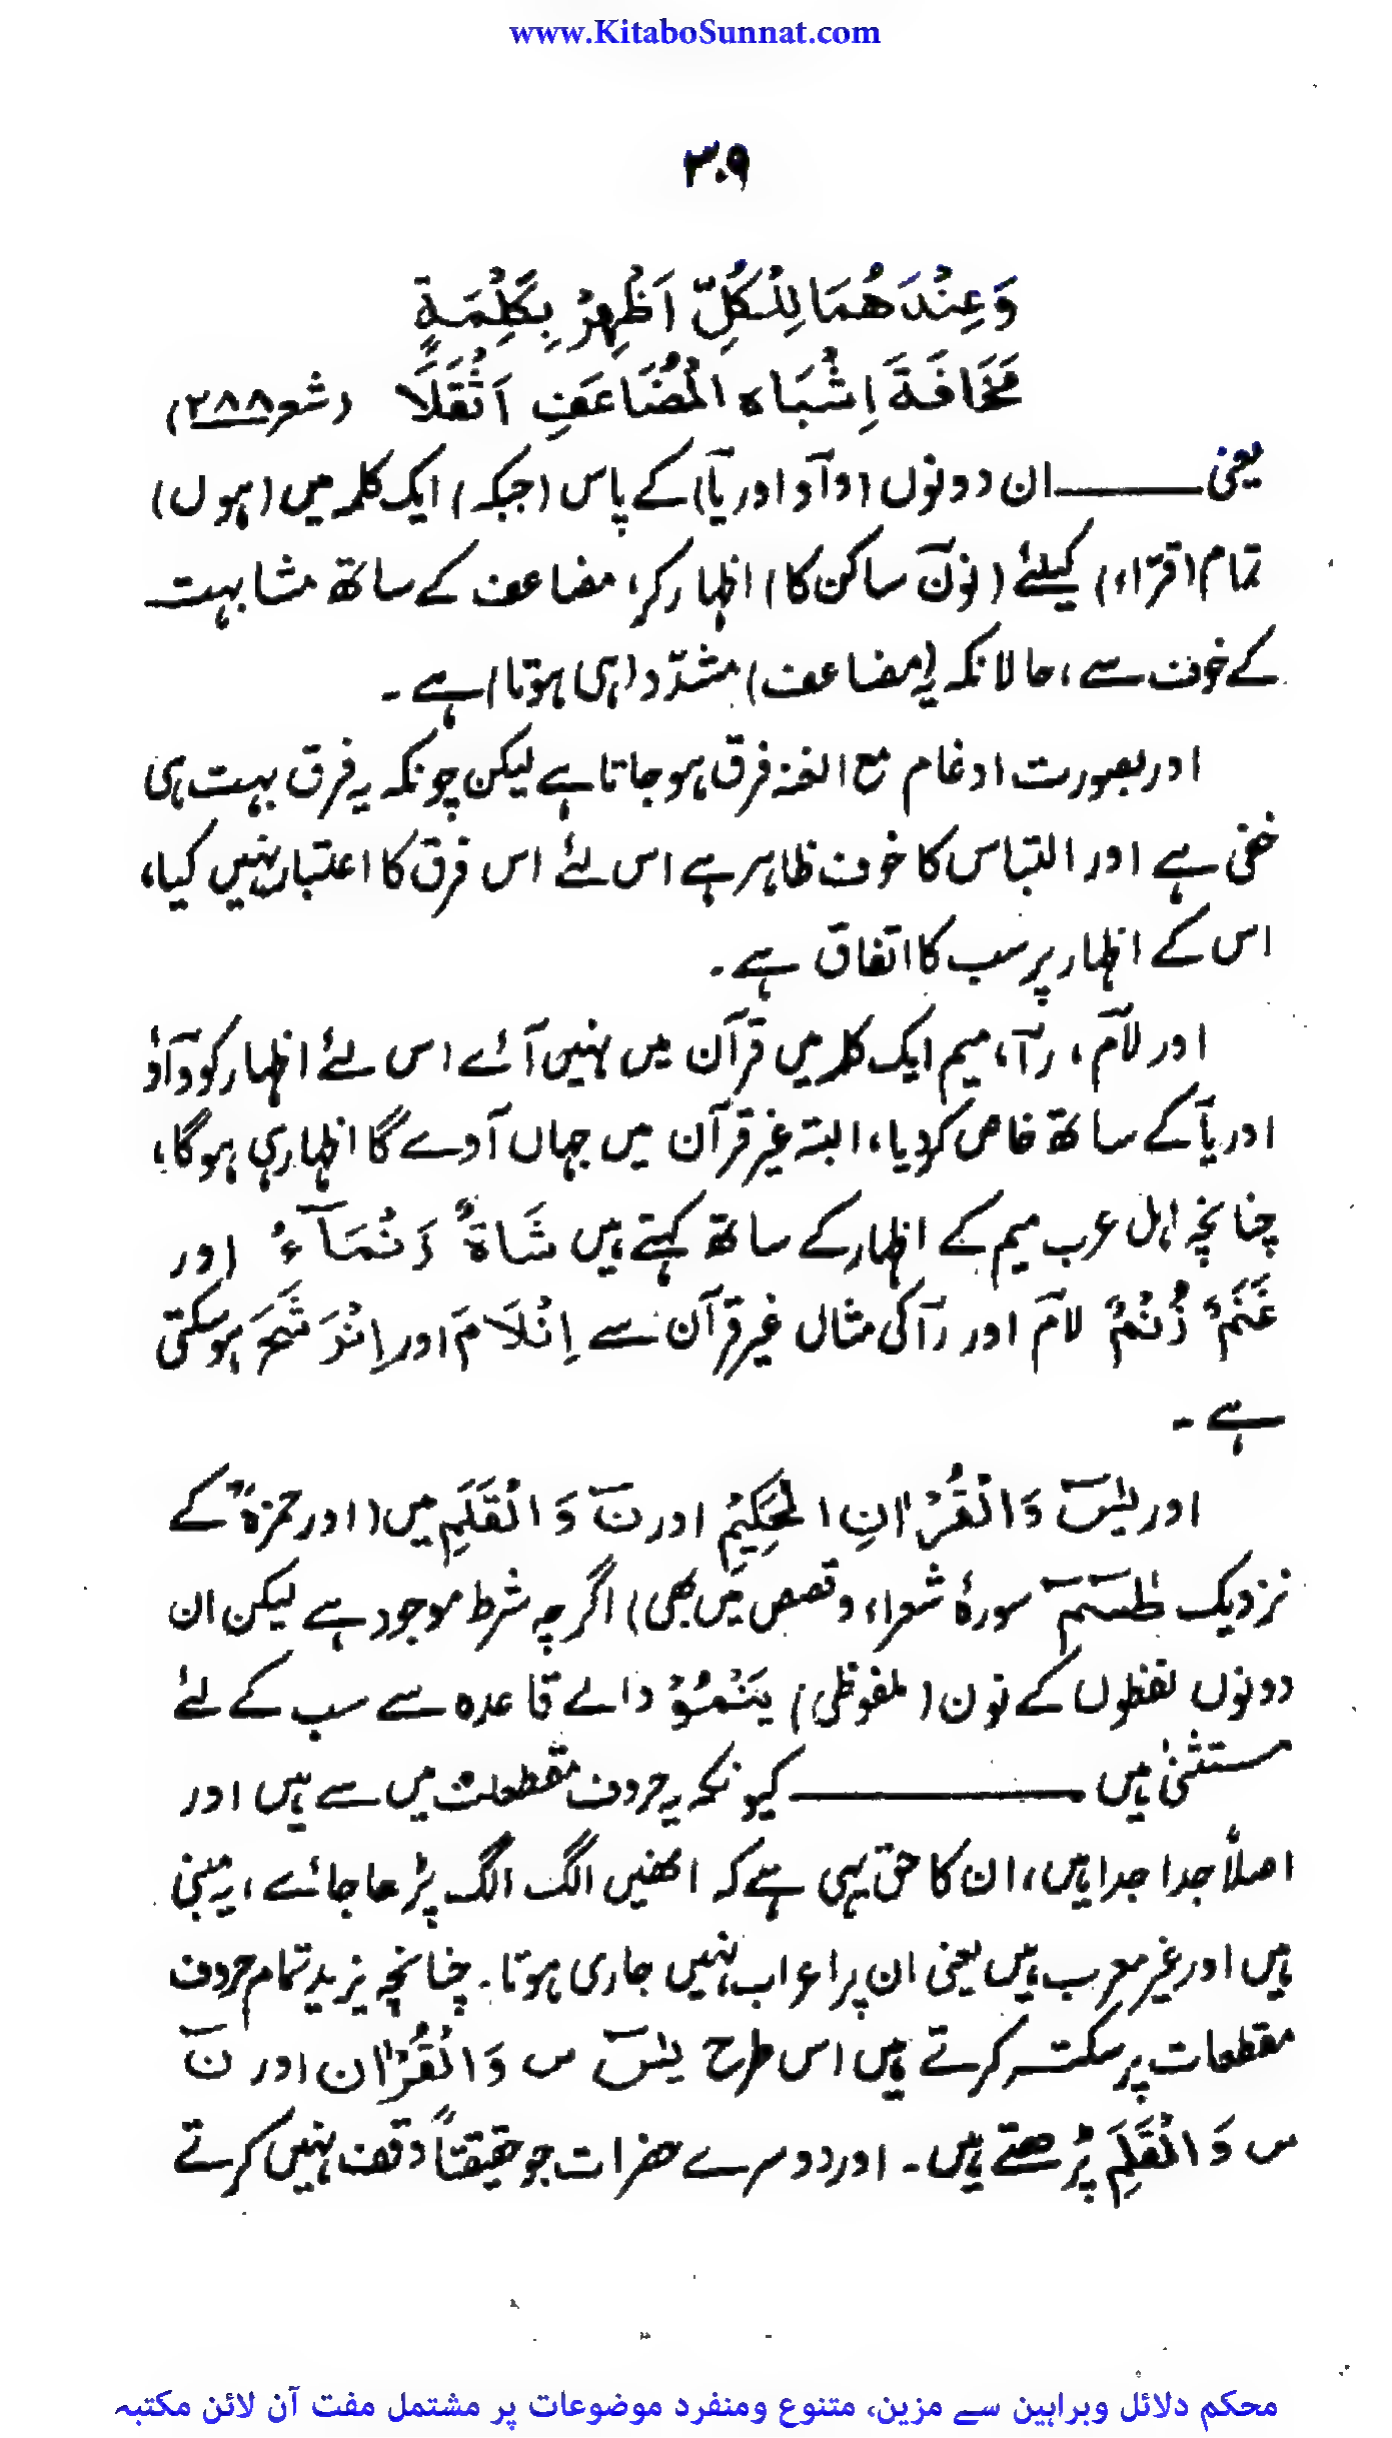 www.KitaboSunnat.com
۳۰۹
وَعِنْدَهُمَا لِلْكُلِّ اَظْهِرْ بِكَلِمَةٍ
مَخَافَةَ اِشْبَاهِ الْمُضَاعَفِ اَثْقَلَا (شعر ۲۸۸)
یعنی ــــــ ان دونوں (وآو اور یآ) کے پاس (جبکہ) ایک کلمہ میں (ہوں)
تمام (قرّاء) کیلئے (نونؔ ساکن کا) اظہار کر، مضاعف کے ساتھ مشابہت
کے خوف سے، حالانکہ یہ (مضاعف) مشدّد (ہی ہوتا) ہے۔
اور بصورت ادغام مع الغنہ فرق ہو جاتا ہے لیکن چونکہ یہ فرق بہت ہی
خفی ہے اور التباس کا خوف ظاہر ہے اس لئے اس فرق کا اعتبار نہیں کیا،
اس کے اظہار پر سب کا اتفاق ہے۔
اور لآم، رآ، میم ایک کلمہ میں قرآن میں نہیں آئے اس لئے اظہار کو وآو
اور یآ کے ساتھ خاص کر دیا، البتہ غیر قرآن میں جہاں آوے گا اظہار ہی ہوگا،
چنانچہ اہل عرب میم کے اظہار کے ساتھ کہتے ہیں شَاةٌ زَنْمَآءُ اور
غَنَمٌ زُنْمٌ لآم اور رآ کی مثال غیر قرآن سے اِنْلَامَ اور اِنْرَ شَحَرَ ہوسکتی
ہے۔
اور یٰسٓ وَالْقُرْاٰنِ الْحَكِيْمِ اور نٓ وَالْقَلَمِ میں (اور حمزہؒ کے
نزدیک طٰسٓمٓ سورۂ شعراء و قصص میں بھی) اگرچہ شرط موجود ہے لیکن ان
دونوں لفظوں کے نون (ملفوظی) يَنْمُوْ والے قاعدہ سے سب کے لئے
مستثنیٰ ہیں ــــــــــــ کیونکہ یہ حروف مقطعات میں سے ہیں اور
اصلاً جدا جدا ہیں، ان کا حق یہی ہے کہ انھیں الگ الگ پڑھا جائے، یہ مبنی
ہیں اور غیر معرب ہیں یعنی ان پر اعراب نہیں جاری ہوتا۔ چنانچہ یزید تمام حروف
مقطعات پر سکتہ کرتے ہیں اس طرح یٰسٓ س وَالْقُرْاٰن اور نٓ
س وَالْقَلَمِ پڑھتے ہیں۔ اور دوسرے حضرات جو حقیقتاً وقف نہیں کرتے
محکم دلائل وبراہین سے مزین، متنوع ومنفرد موضوعات پر مشتمل مفت آن لائن مکتبہ